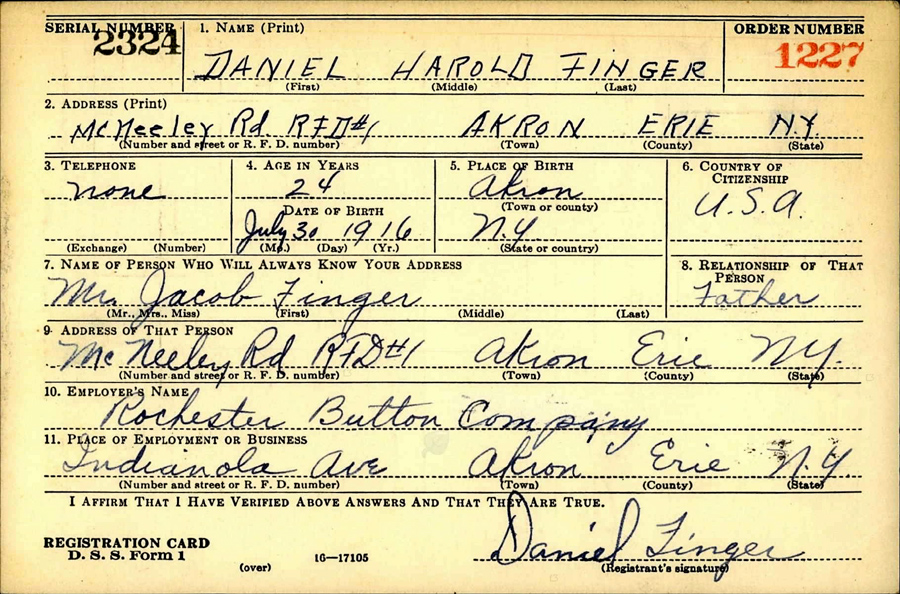 SERIAL NUMBER 1. NAME (Print) ORDER NUMBER
2324 DANIEL HAROLD FINGER 1227
(First) (Middle) (Last)
2. ADDRESS (Print)
McNeeley Rd. RFD#1 AKRON ERIE N.Y.
(Number and street or R. F. D. number) (Town) (County) (State)
3. TELEPHONE 4. AGE IN YEARS 5. PLACE OF BIRTH 6. COUNTRY OF CITIZENSHIP
none 24 Akron U.S.A.
(Town or county)
DATE OF BIRTH
July 30 1916 N.Y.
(Exchange) (Number) (Mo.) (Day) (Yr.) (State or country)
7. NAME OF PERSON WHO WILL ALWAYS KNOW YOUR ADDRESS 8. RELATIONSHIP OF THAT PERSON
Mr. Jacob Finger Father
(Mr., Mrs., Miss) (First) (Middle) (Last)
9. ADDRESS OF THAT PERSON
McNeeley Rd RFD#1 Akron Erie N.Y.
(Number and street or R. F. D. number) (Town) (County) (State)
10. EMPLOYER'S NAME
Rochester Button Company
11. PLACE OF EMPLOYMENT OR BUSINESS
Indianola Ave Akron Erie N.Y.
(Number and street or R. F. D. number) (Town) (County) (State)
I AFFIRM THAT I HAVE VERIFIED ABOVE ANSWERS AND THAT THEY ARE TRUE.
Daniel Finger
REGISTRATION CARD
D. S. S. Form 1 (over) 16—17105 (Registrant's signature)